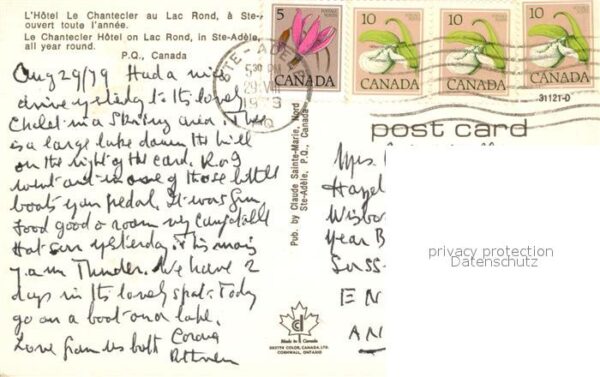 L'Hôtel Le Chantecler au Lac Rond, à Ste-
ouvert toute l'année.
Le Chantecler Hôtel on Lac Rond, in Ste-Adèle,
all year round.
P.Q., Canada
5
CANADA
10
CANADA
10
CANADA
10
CANADA
STE-AD
5 30 PM
29 VIII
PQ
31121-D
post card
Aug 29/79 Had a nice
drive yesterday to this lovely
in a Skiing area. There
is a large lake down the hill
on the right of the card. R and I
went out in one of those little
boats you pedal. It was fun
Food good & room very comfortable
Hot sun yesterday & this morning
7 a.m Thunder. We have 2
days in this lovely spot. Today
go on a boat on a lake.
Love from us both
Pub. by Claude Sainte-Marie, Nord
Ste-Adèle, P.Q., Canada
Made in Canada
DEXTER COLOR, CANADA, LTD.
CORNWALL, ONTARIO
Mrs.
Hazel
Wisbor
Year B
Suss
EN
privacy protection
Datenschutz